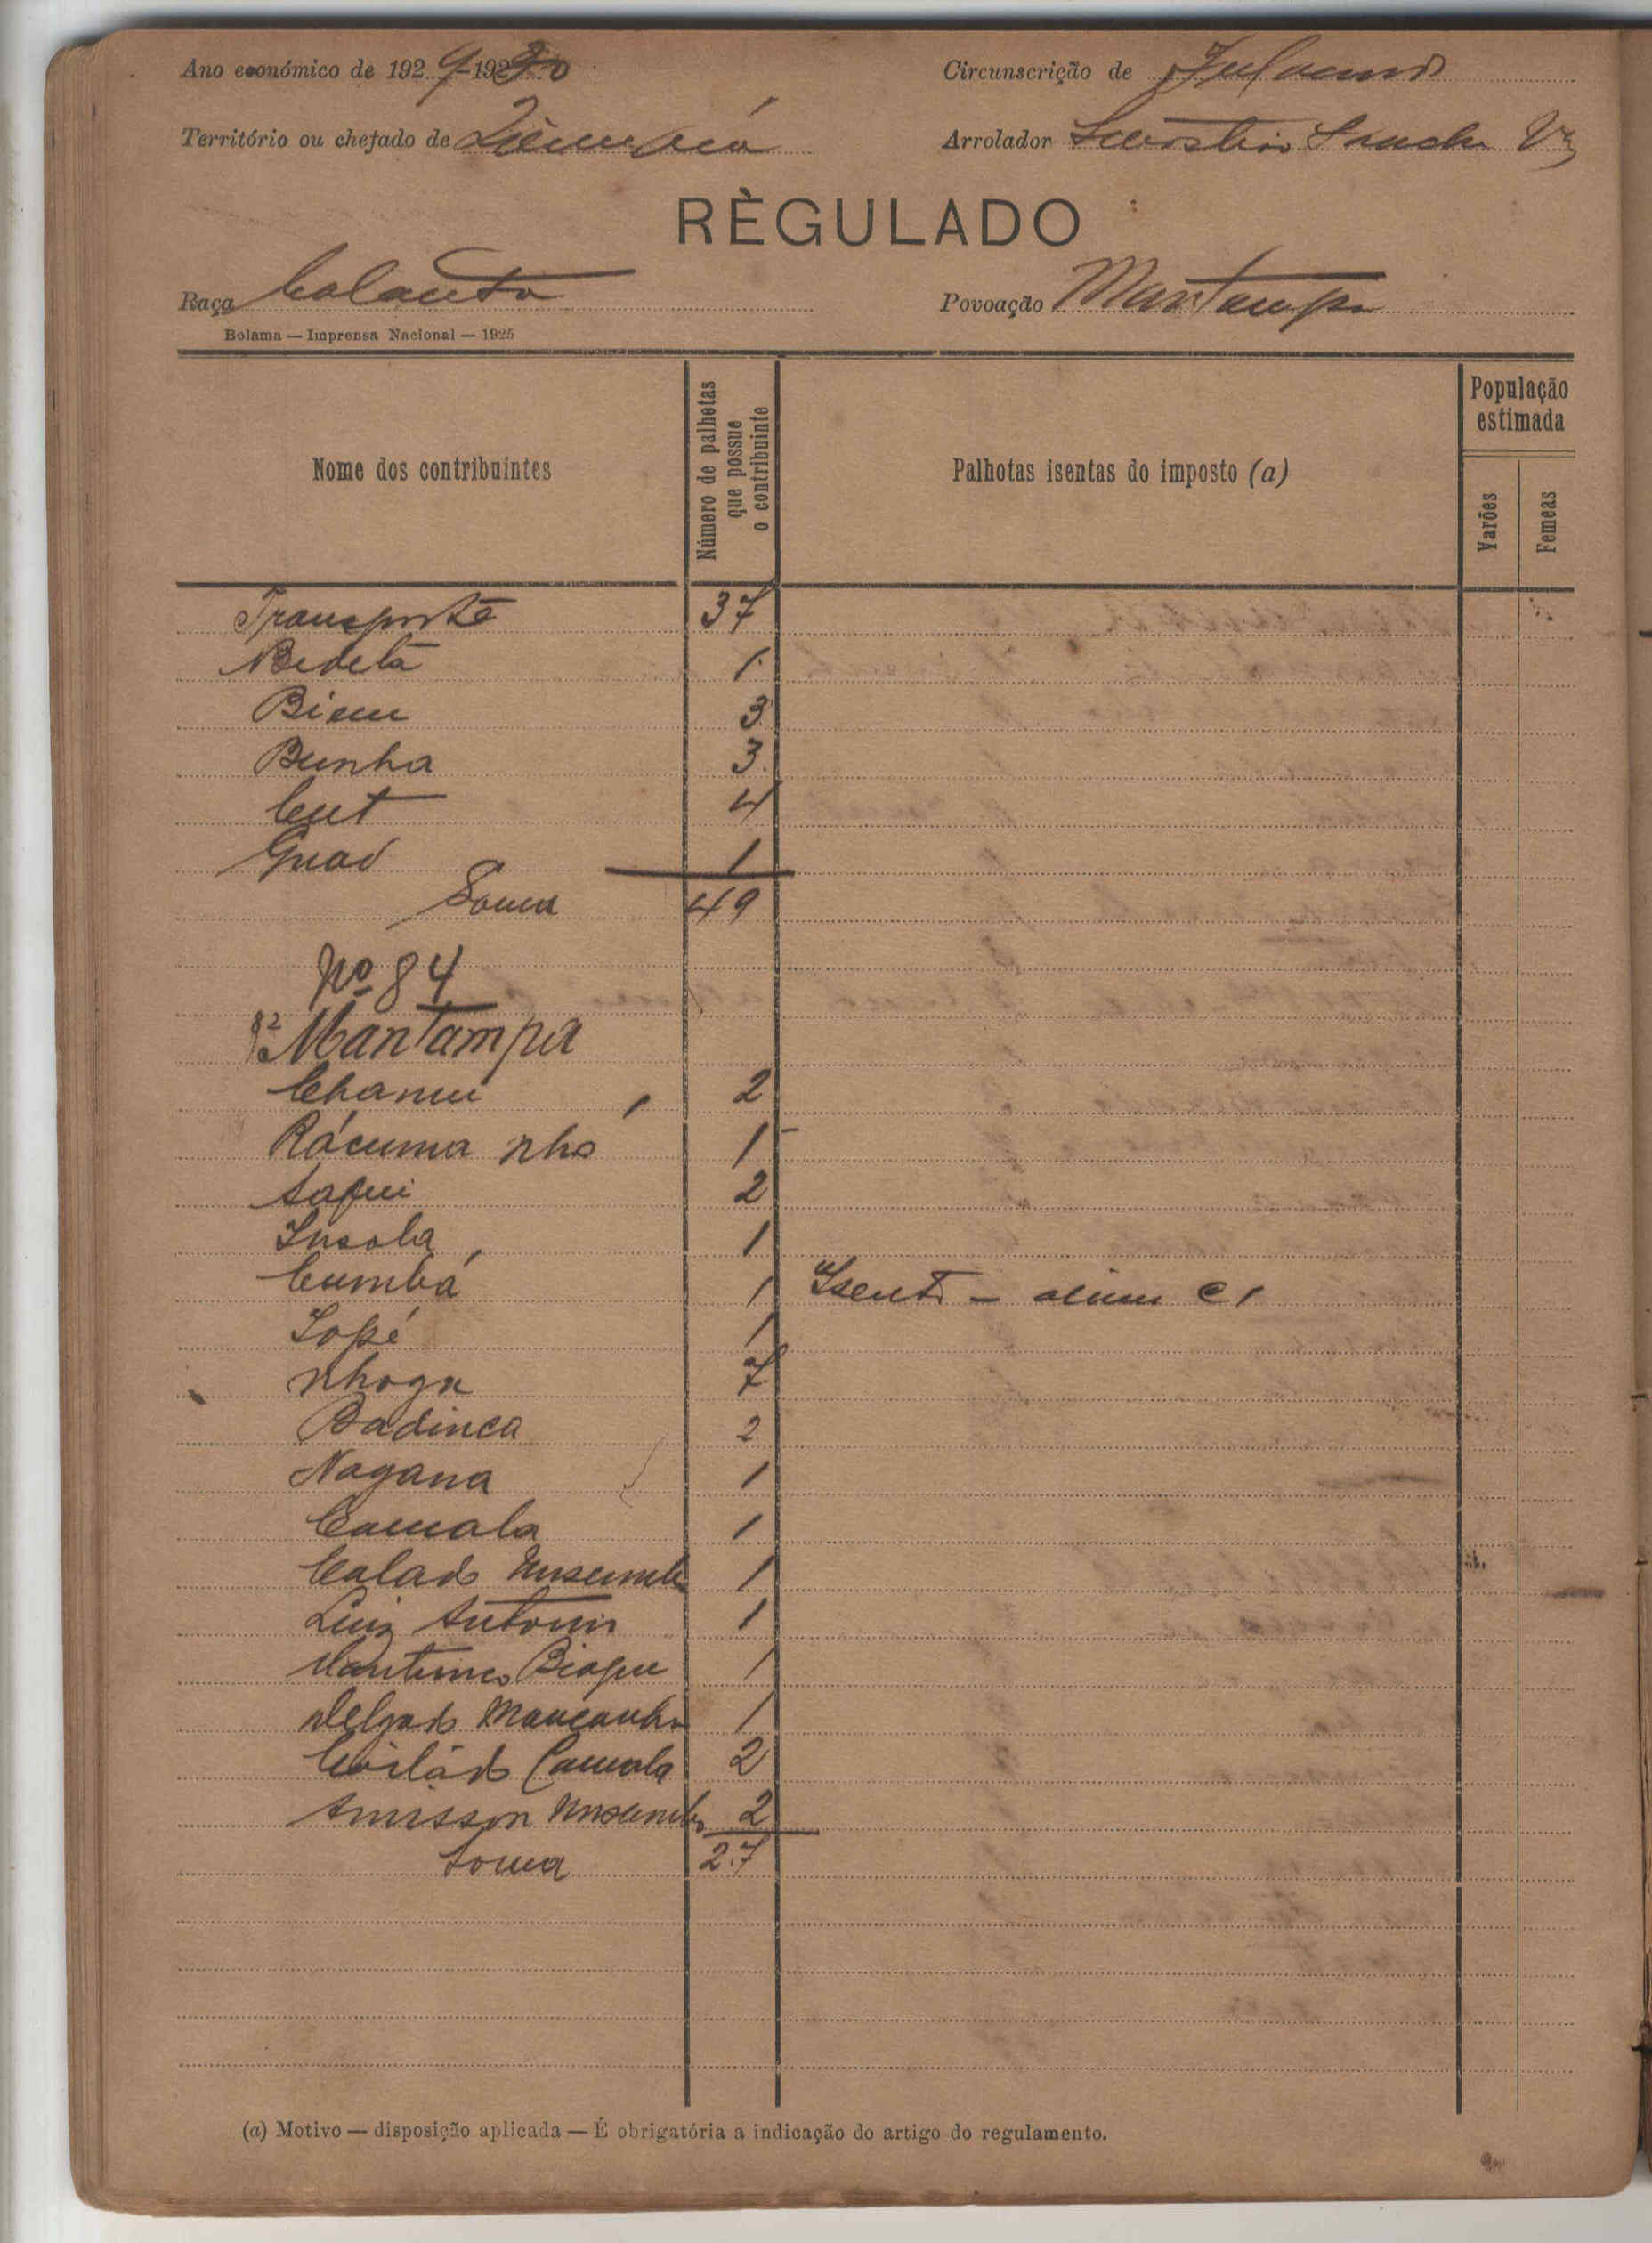 Ano económico de 1929-1930
Circunscrição de
Território ou chefado de
Arrolador Sebastião
RÈGULADO
Raça Balanta
Povoação Mantampa
Bolama — Imprensa Nacional — 1925
Nome dos contribuintes
Número de palhotas que possue o contribuinte
Palhotas isentas do imposto (a)
População estimada
Varões
Femeas
Transporte 37
Bedeta 1
Bieu 3
Bunha 3
Cut 4
Guad 1
Soma 49
Nº 84
Mantampa
Chamu 2
Rácuma nhs 1
Saqui 2
Insola 1
Cumbá 1 Isento — alinea C1
Sopé 1
Nhoga 7
Badinca 2
Nagana 1
Camala 1
Calado 1
Luiz Antonio 1
Biague 1
Delgado Mancanha 1
Camala 2
2
Soma 27
(a) Motivo — disposição aplicada — É obrigatória a indicação do artigo do regulamento.